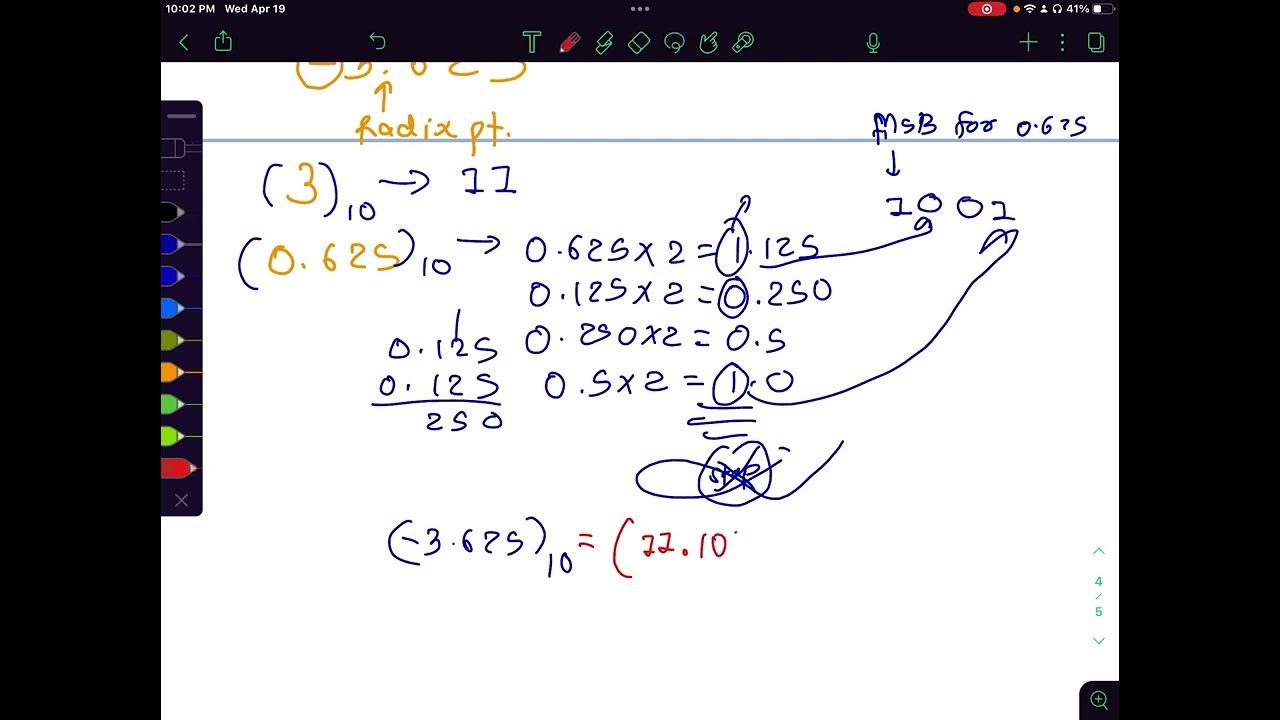 10:02 PM Wed Apr 19
41%
T
-3.625
Radix pt.
MSB for 0.625
(3)10 → 11
1001
(0.625)10 → 0.625x2 = 1.125
0.125x2 = 0.250
0.125 0.250x2 = 0.5
0.125 0.5x2 = 1.0
250
(-3.625)10 = (11.10
4
/
5